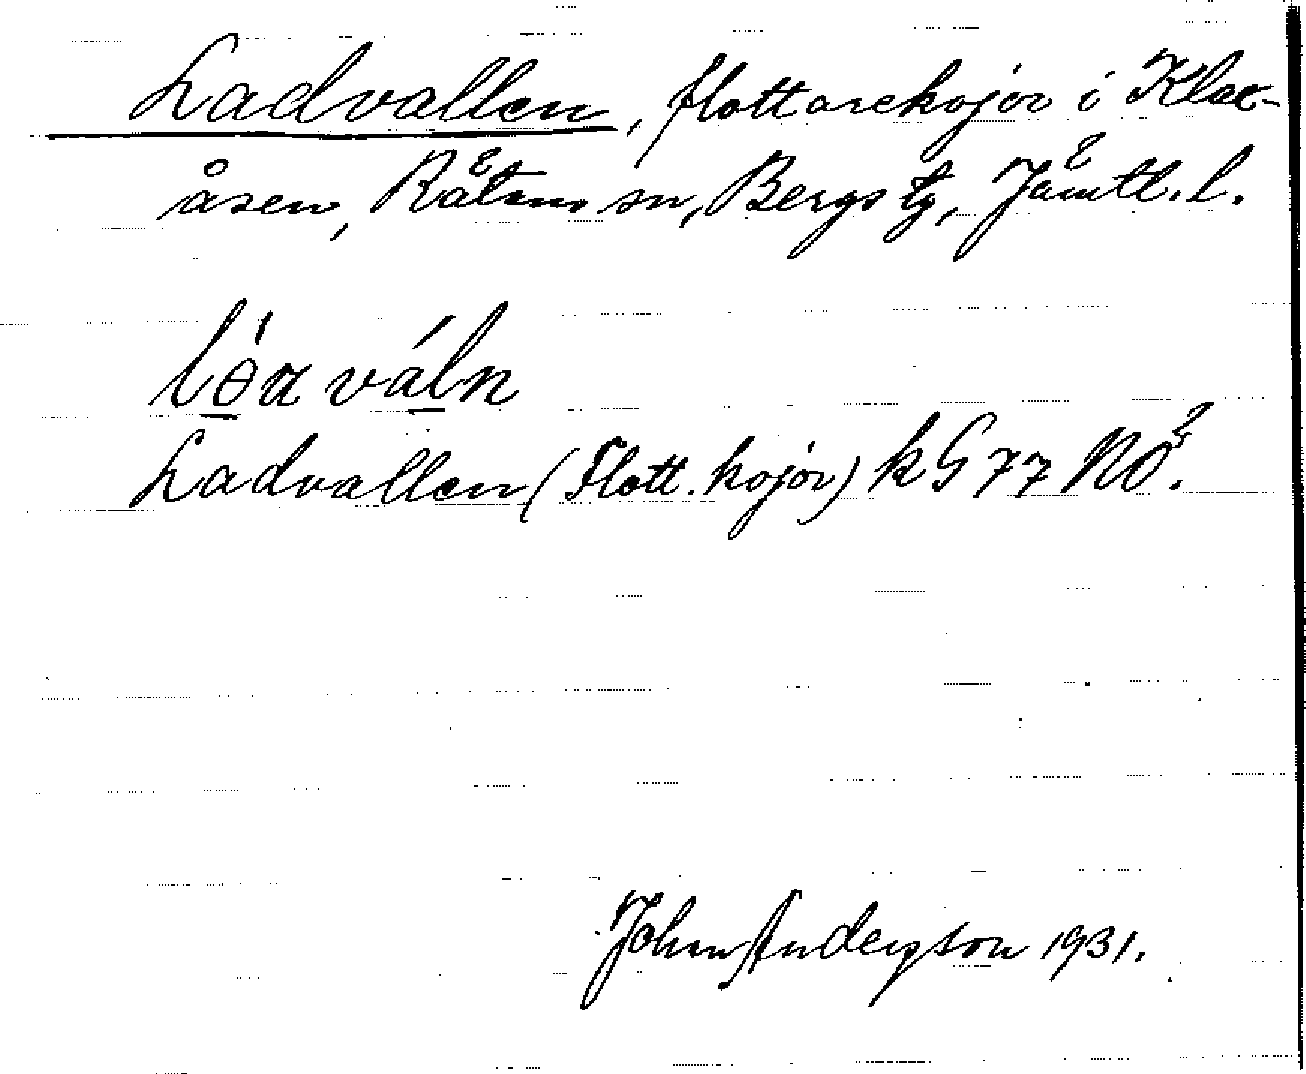 Ladvallen, flottarekojor i Klax-
åsen, Rätans sn, Bergs tg, Jämtl. l.
lèa váln
Ladvallen (Flott. kojor) k G 77 NO.
John Andersson 1931.